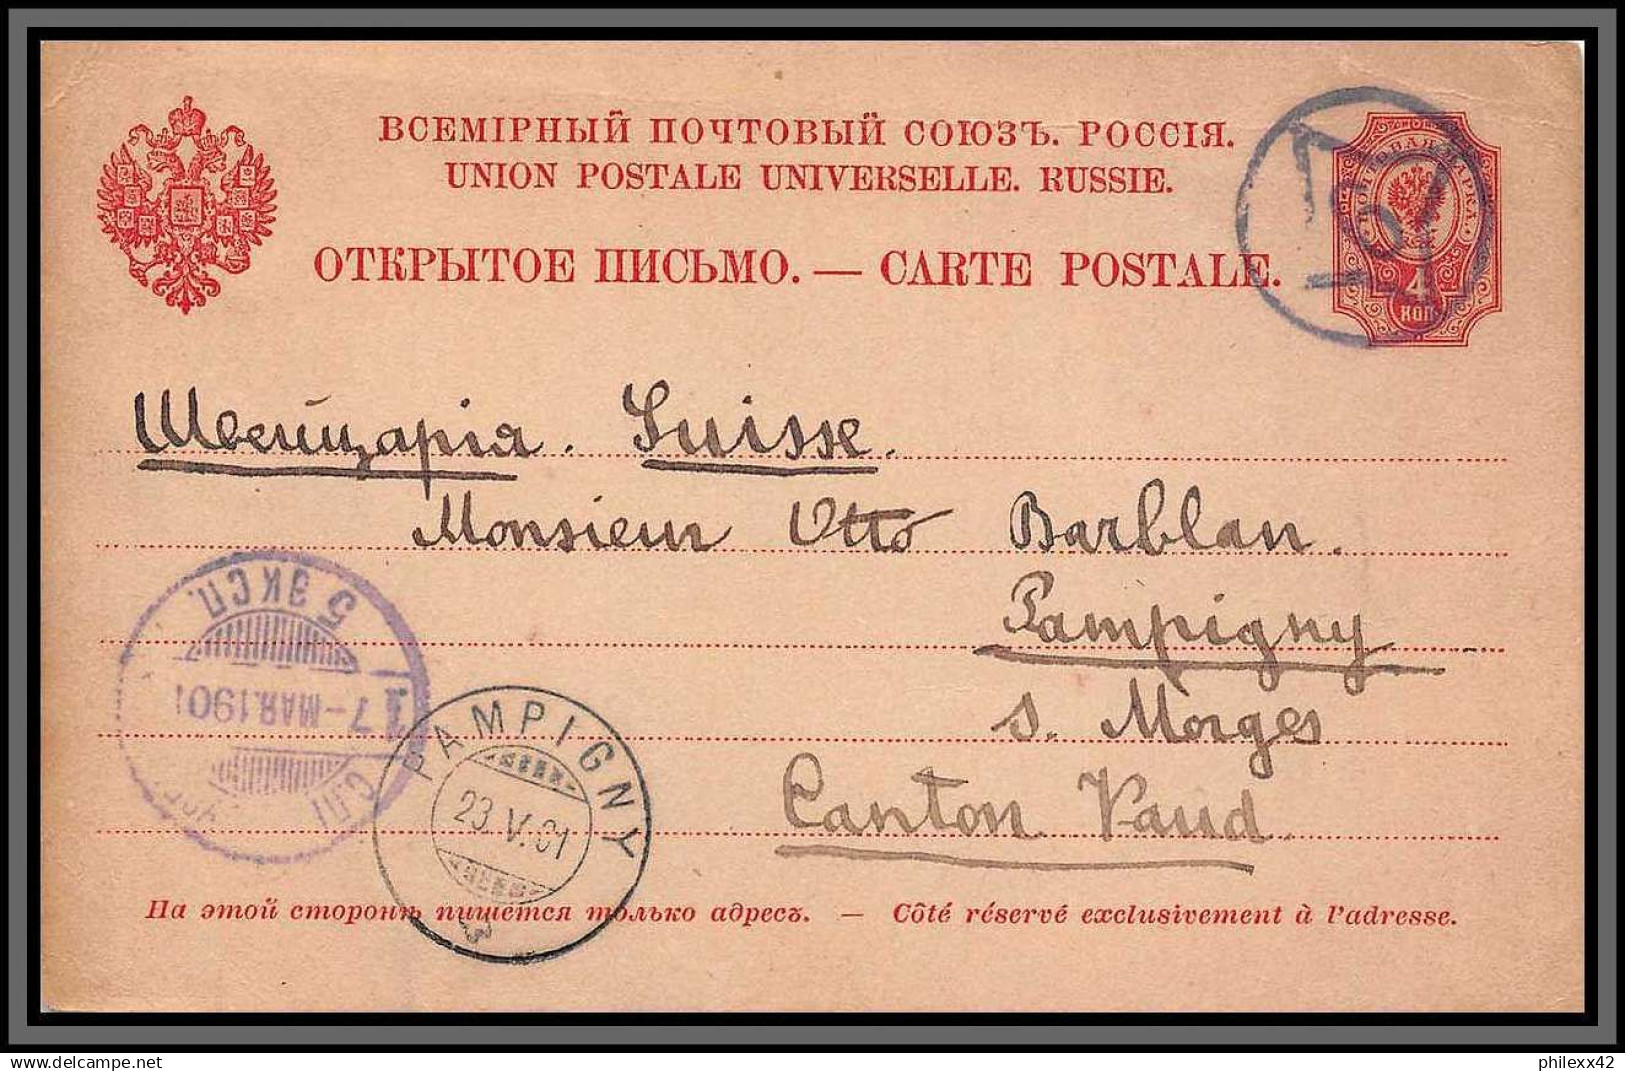 ВСЕМІРНЫЙ ПОЧТОВЫЙ СОЮЗЪ. РОССІЯ.
UNION POSTALE UNIVERSELLE. RUSSIE.
ОТКРЫТОЕ ПИСЬМО. — CARTE POSTALE.
4
КОП
Швейцарія. Suisse.
Monsieur Otto Barblan.
Pampigny
s. Morges
Canton Vaud.
5 ЭКСП.
17-МАЯ.1901
СПБ
PAMPIGNY
23.V.01
На этой сторонѣ пишется только адресъ. — Côté réservé exclusivement à l'adresse.
delcampe.net
philexx42